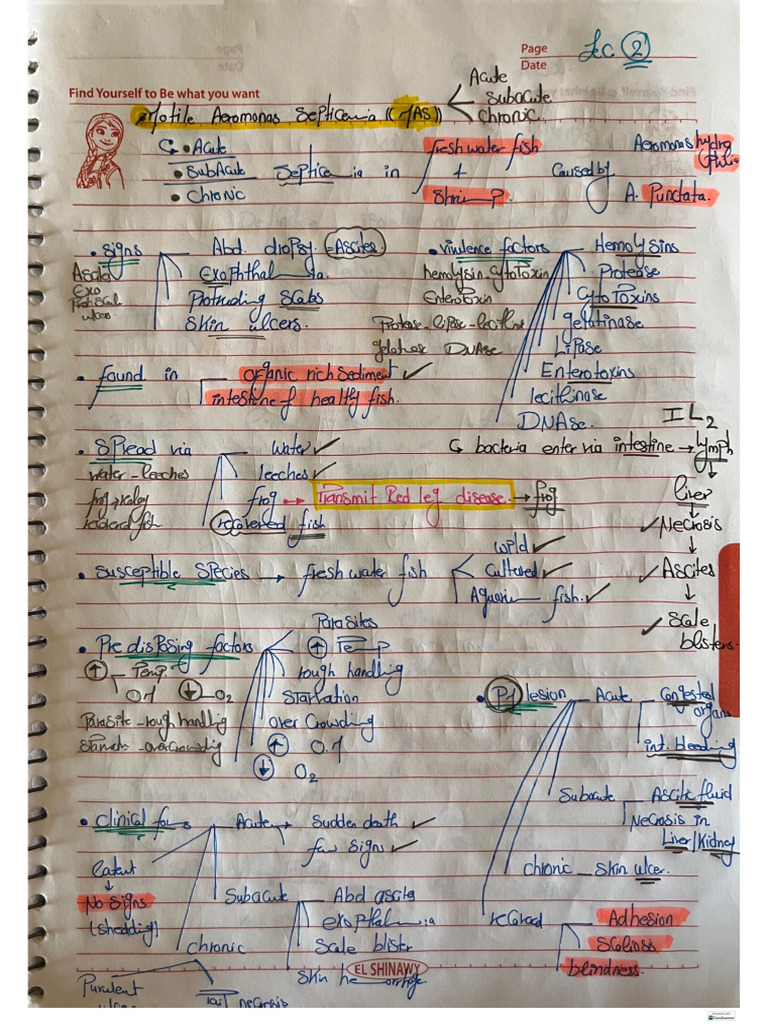 Page
Date
Lec 2
Find Yourself to Be what you want
Acute
Subacute
chronic
Motile Aeromonas Septicemia (MAS)
• Acute
• SubAcute
• Chronic
Septicemia in
freshwater fish
+
Shrimp
Caused by
Aeromonas hydrophila
A. Punctata.
• signs
Abd. dropsy = Ascites.
Exophthalmia.
Protruding Scabs
Skin ulcers.
Exo
ulcers.
• virulence factors
Hemolysins
Protease
CytoToxins
gelatinase
Lipase
Enterotoxins
lecithinase
DNAse.
hemolysin-cytotoxin
Enterotoxin
Protease - lipase - lecithinase
gelatinase DNAse
• found in
organic rich sediment ✓
intestine of healthy fish.
IL2
↳ bacteria enter via intestine → lymph
↓
liver
↓
✓ Necrosis
↓
✓ Ascites
↓
✓ Scale blisters
• Spread via
water ✓
leeches ✓
frog → Transmit Red leg disease. → frog
recovered fish
water - leeches
recovered fish
• Susceptible Species → freshwater fish
wild ✓
Cultured ✓
Aquarium fish. ✓
• Predisposing factors
Parasites
↑ Temp
rough handling
Starvation
over Crowding
↑ O.M
↓ O2
↑ Temp.
O.M ↓ O2
Parasite - rough handling
Starvation - overcrowding
• PM lesion
Acute
Congested organs
int. bleeding
Subacute
Ascitic fluid
Necrosis in
Liver/Kidney
chronic _ skin ulcer.
recovered
Adhesion
Scoliosis
blindness.
• Clinical forms
Acute → Sudden death ✓
few signs ✓
latent
↓
No signs
(shedding)
Subacute
Abd ascites
exophthalmia
Scale blister
Skin hemorrhage
chronic
Purulent
ulcer
Tail necrosis
EL SHINAWY